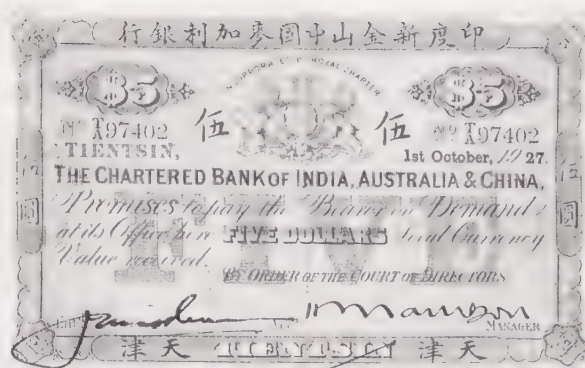 行銀利加麥國中山金新度印
INCORPORATED BY ROYAL CHARTER
$5 $5
伍 伍
Nº T/A 97402 Nº T/A 97402
TIENTSIN,
1st October, 1927.
THE CHARTERED BANK OF INDIA, AUSTRALIA & CHINA,
Promises to pay the Bearer on Demand
at its Office here FIVE DOLLARS local Currency
Value received.
BY ORDER OF THE COURT OF DIRECTORS
MANAGER
津天 TIENTSIN 津天